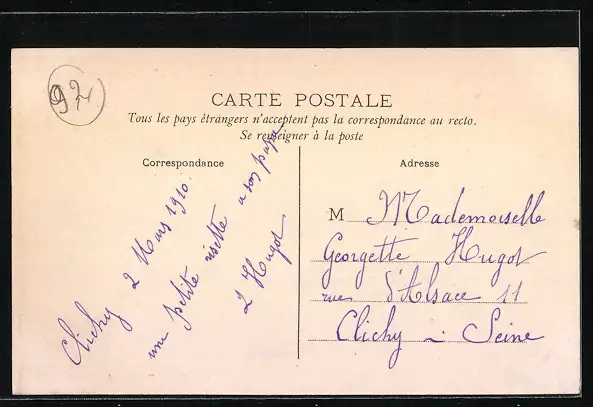 92
CARTE POSTALE
Tous les pays étrangers n'acceptent pas la correspondance au recto.
Se renseigner à la poste
Correspondance
Clichy 2 Mars 1910
une petite risette a son papa
L Hugot
Adresse
M Mademoiselle
Georgette Hugot
rue d'Alsace 11
Clichy - Seine